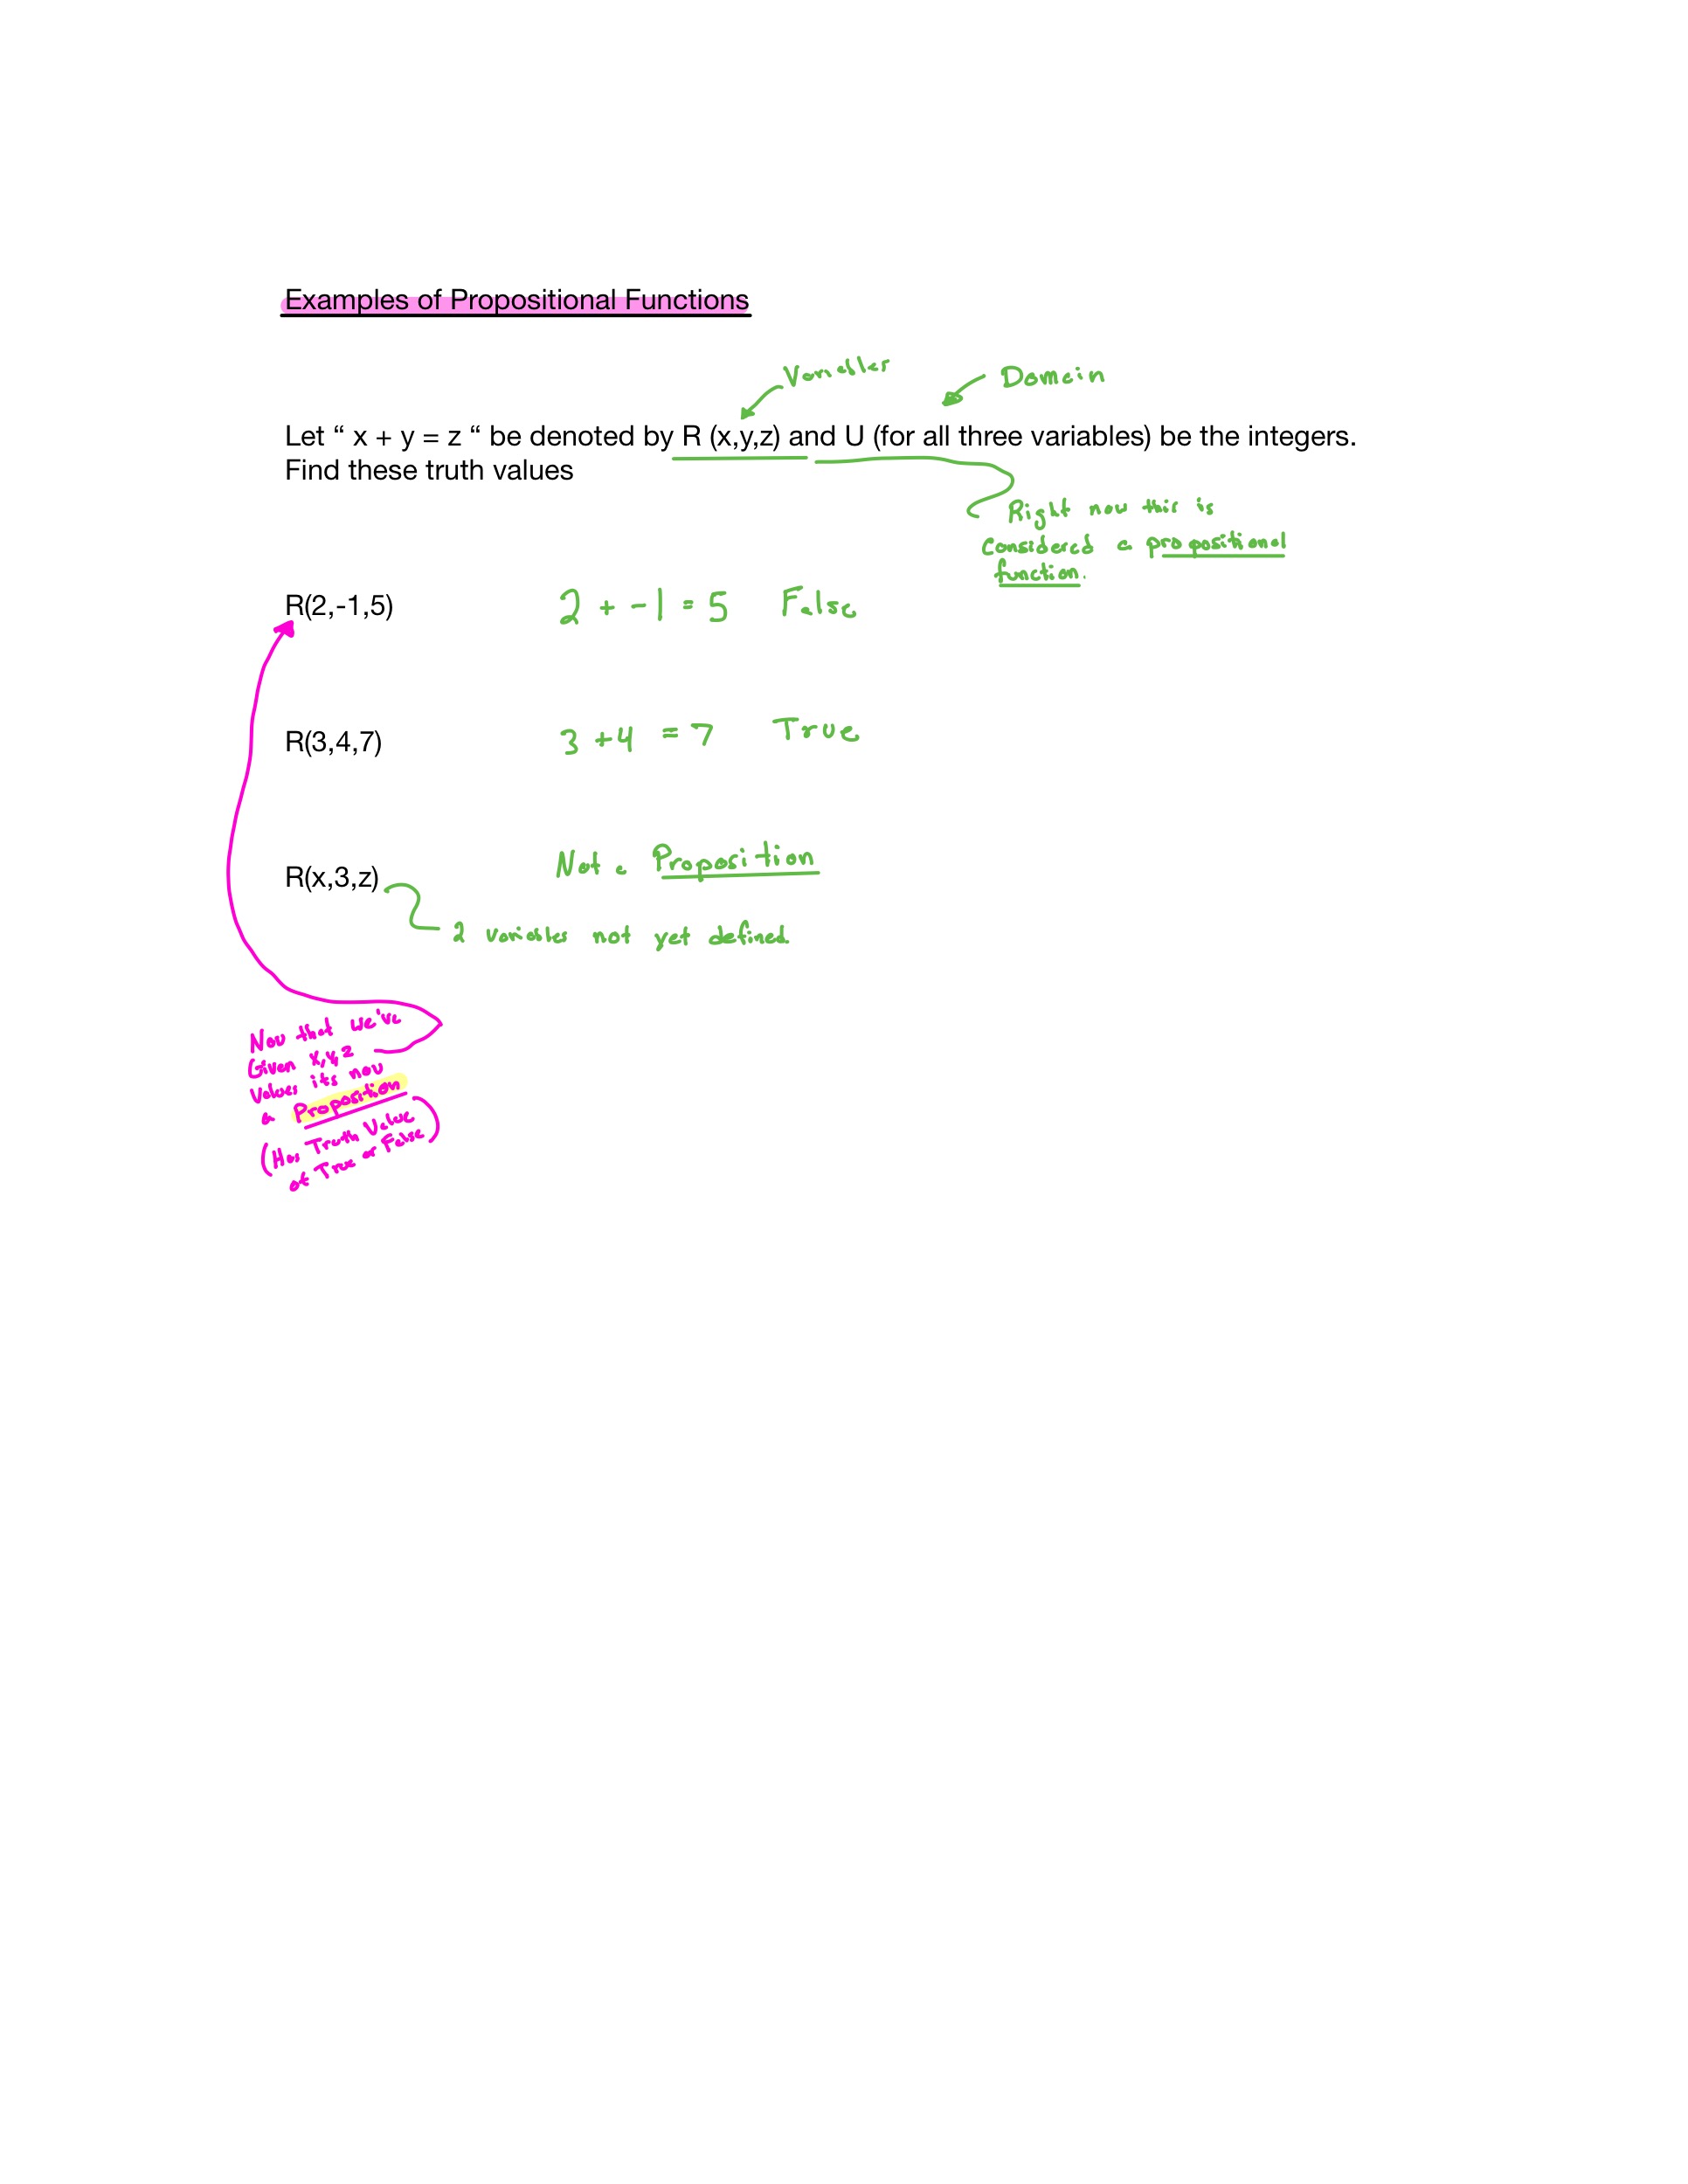 Examples of Propositional Functions
Variables
Domain
Let “ x + y = z “ be denoted by R (x,y,z) and U (for all three variables) be the integers.
Find these truth values
Right now this is
considered a propositional
function.
R(2,-1,5) 2 + -1 = 5 False
R(3,4,7) 3 + 4 = 7 True
R(x,3,z) Not a Proposition
2 variables not yet defined.
Now that we've
Given x,y,z
values its now
a Proposition
(Has Truth Value
of True or False)